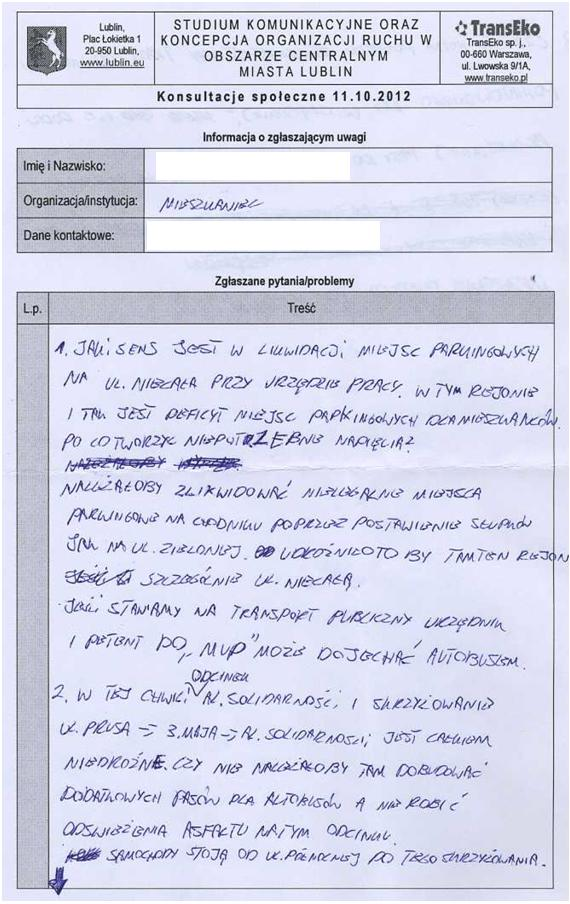 Lublin,
Plac Łokietka 1
20-950 Lublin,
www.lublin.eu
STUDIUM KOMUNIKACYJNE ORAZ
KONCEPCJA ORGANIZACJI RUCHU W
OBSZARZE CENTRALNYM
MIASTA LUBLIN
TransEko
TransEko sp. j.,
00-660 Warszawa,
ul. Lwowska 9/1A,
www.transeko.pl
Konsultacje społeczne 11.10.2012
Informacja o zgłaszającym uwagi
Imię i Nazwisko:
Organizacja/instytucja: MIESZKANIEC
Dane kontaktowe:
Zgłaszane pytania/problemy
L.p. Treść
1. JAKI SENS JEST W LIKWIDACJI MIEJSC PARKINGOWYCH
NA UL. NIECAŁA PRZY URZĘDZIE PRACY. W TYM REJONIE
I TAK JEST DEFICYT MIEJSC PARKINGOWYCH DLA MIESZKAŃCÓW.
PO CO TWORZYĆ NIEPOTRZEBNE NAPIĘCIA?
NALEŻAŁOBY ZLIKWIDOWAĆ NIELEGALNE MIEJSCA
PARKINGOWE NA CHODNIKU POPRZEZ POSTAWIENIE SŁUPKÓW
JAK NA UL. ZIELONEJ. UDROŻNIŁOTO BY TAMTEN REJON
SZCZEGÓLNIE UL. NIECAŁĄ.
JEŚLI STAWIAMY NA TRANSPORT PUBLICZNY URZĘDNIK
I PETENT DO „MUP" MOŻE DOJECHAĆ AUTOBUSEM.
2. W TEJ CHWILI ODCINEK AL. SOLIDARNOŚCI I SKRZYŻOWANIE
UL. PRUSA → 3. MAJA → AL. SOLIDARNOŚCI JEST CAŁKIEM
NIEDROŻNE. CZY NIE NALEŻAŁOBY TAM DOBUDOWAĆ
DODATKOWYCH PASÓW DLA AUTOBUSÓW A NIE ROBIĆ
ODŚWIEŻENIA ASFALTU NA TYM ODCINKU.
SAMOCHODY STOJĄ OD UL. PÓŁNOCNEJ DO TEGO SKRZYŻOWANIA.